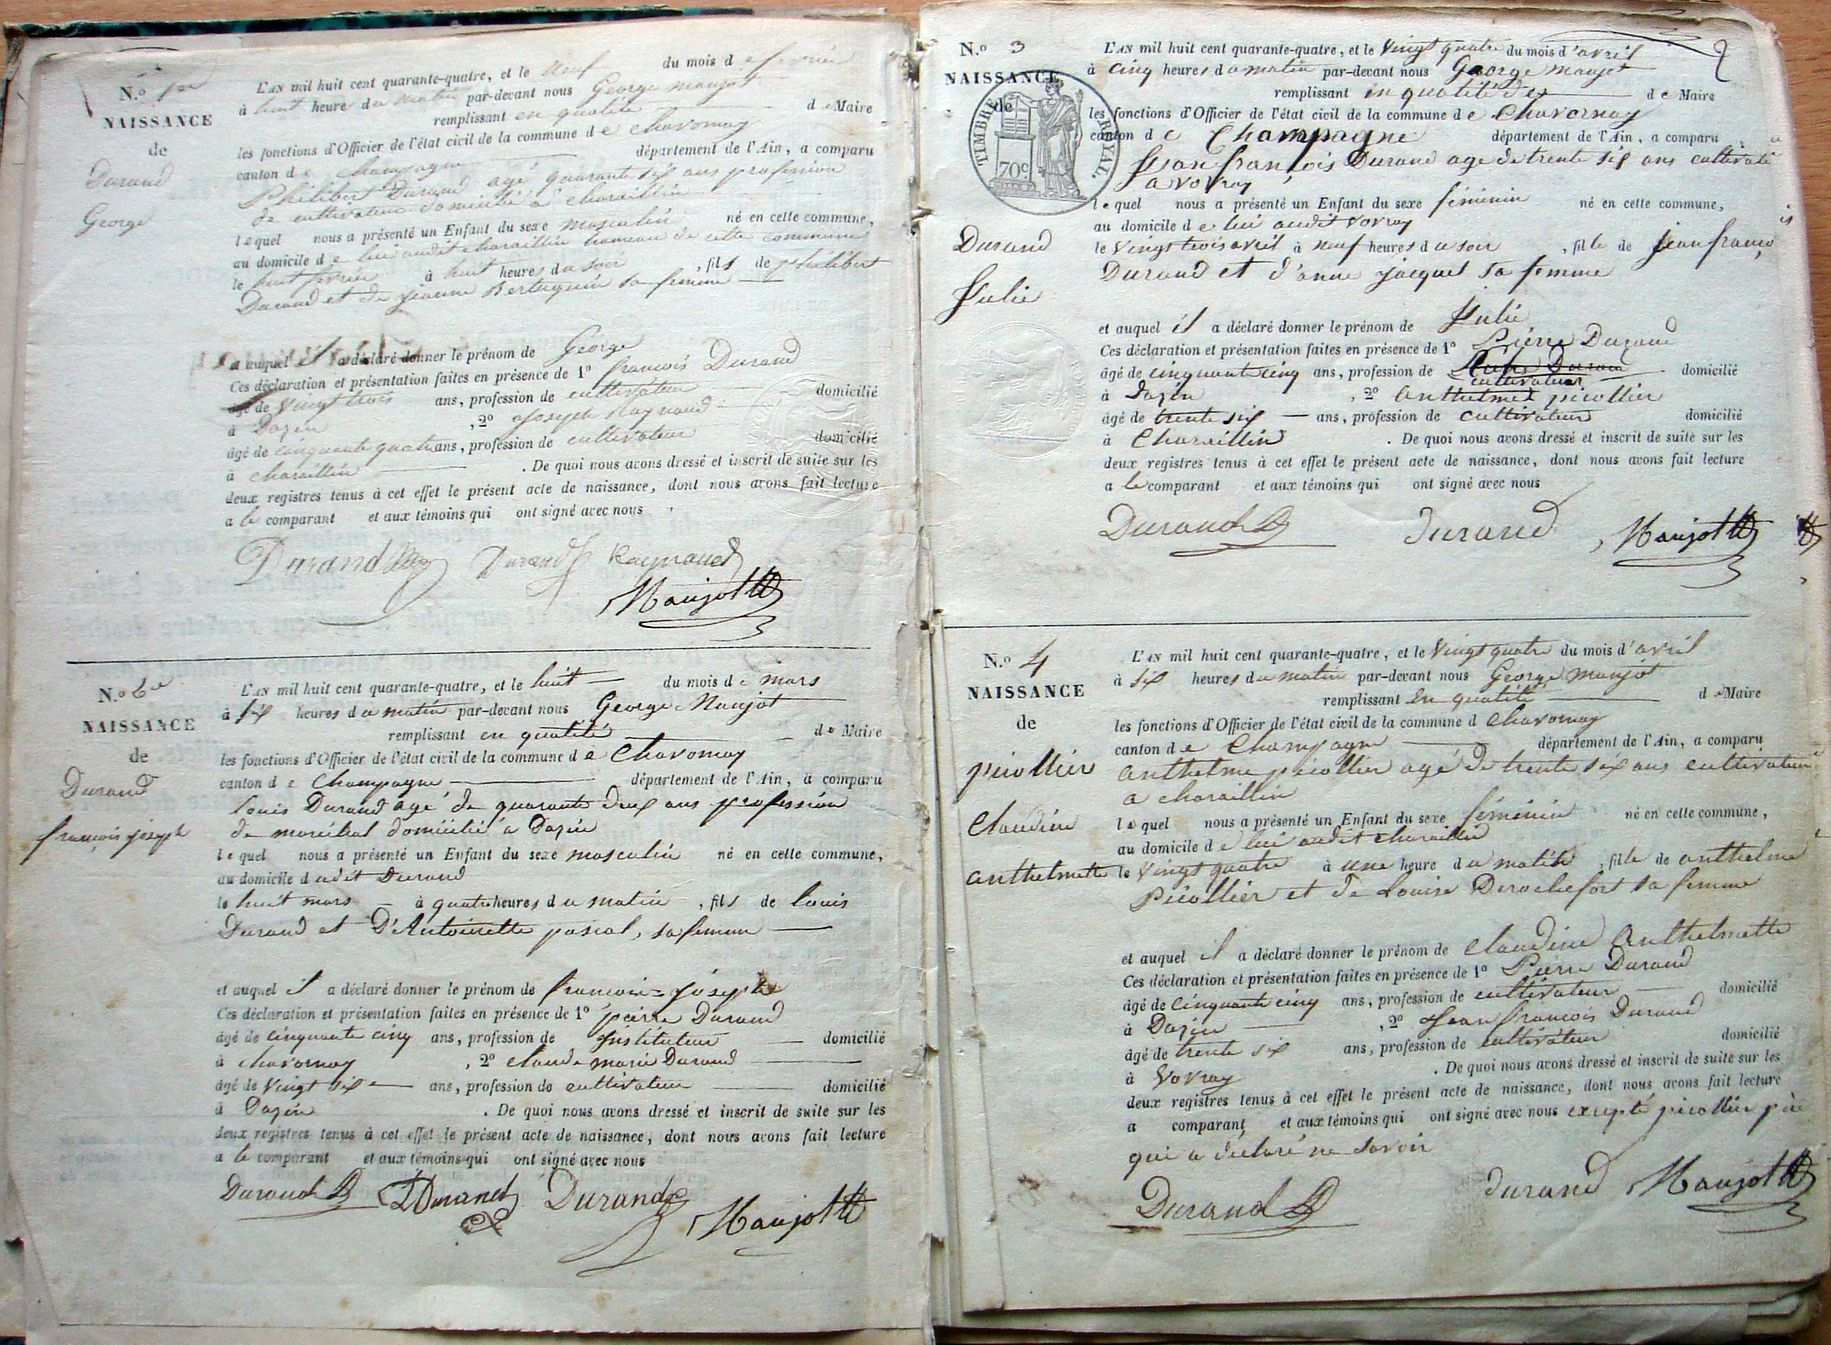 N.º 1er
NAISSANCE
de
Durand
George
L'AN mil huit cent quarante-quatre, et le neuf du mois de février
à huit heures du matin par-devant nous George Maujot
remplissant en qualité de Maire
les fonctions d'Officier de l'état civil de la commune de Chavornay
canton de Champagne département de l'Ain, a comparu
Philibert Durand agé quarante six ans profession
de cultivateur domicilié à charaillin
lequel nous a présenté un Enfant du sexe masculin né en cette commune,
au domicile de lui audit charaillin hameau de cette commune
le huit février à huit heures du soir, fils de philibert
Durand et de jeanne Bertuquin sa femme
et auquel il a déclaré donner le prénom de George
Ces déclaration et présentation faites en présence de 1º françois Durand
âgé de vingt trois ans, profession de cultivateur domicilié
à Dazin, 2º Joseph Raynaud
âgé de cinquante quatre ans, profession de cultivateur domicilié
à charaillin. De quoi nous avons dressé et inscrit de suite sur les
deux registres tenus à cet effet le présent acte de naissance, dont nous avons fait lecture
a le comparant et aux témoins qui ont signé avec nous
Durand Durand Raynaud
Maujot
N.º 2e
NAISSANCE
de
Durand
françois joseph
L'AN mil huit cent quarante-quatre, et le huit du mois de mars
à six heures du matin par-devant nous George Maujot
remplissant en qualité de Maire
les fonctions d'Officier de l'état civil de la commune de Chavornay
canton de Champagne département de l'Ain, a comparu
Louis Durand agé de quarante deux ans profession
de maréchal domicilié a Dazin
lequel nous a présenté un Enfant du sexe masculin né en cette commune,
au domicile dudit Durand
le huit mars à quatre heures du matin, fils de Louis
Durand et D'Antoinette pascal, sa femme
et auquel il a déclaré donner le prénom de francois=joseph
Ces déclaration et présentation faites en présence de 1º pierre Durand
âgé de cinquante cinq ans, profession de Instituteur domicilié
à chavornay, 2º claude marie Durand
âgé de vingt six ans, profession de cultivateur domicilié
à Dazin. De quoi nous avons dressé et inscrit de suite sur les
deux registres tenus à cet effet le présent acte de naissance, dont nous avons fait lecture
a le comparant et aux témoins qui ont signé avec nous
Durand Durand Durand
Maujot
N.º 3
NAISSANCE
de
TIMBRE ROYAL.
70c
Durand
Julie
L'AN mil huit cent quarante-quatre, et le vingt quatre du mois d'avril
à cinq heures du matin par-devant nous George Maujot
remplissant en qualité de de Maire
les fonctions d'Officier de l'état civil de la commune de Chavornay
canton de Champagne département de l'Ain, a comparu
Jean françois Durand age de trente six ans cultivate
a vovray
lequel nous a présenté un Enfant du sexe féminin né en cette commune,
au domicile de lui audit vovray
le vingt trois avril à neuf heures du soir, fille de jean franço is
Durand et d'anne jacquet sa femme
et auquel il a déclaré donner le prénom de Julie
Ces déclaration et présentation faites en présence de 1º Pierre Durand
âgé de cinquante cinq ans, profession de cultivateur domicilié
à Dazin, 2º Anthelmes picollier
âgé de trente six ans, profession de cultivateur domicilié
à Charaillin. De quoi nous avons dressé et inscrit de suite sur les
deux registres tenus à cet effet le présent acte de naissance, dont nous avons fait lecture
a le comparant et aux témoins qui ont signé avec nous
Durand Durand Maujot
N.º 4
NAISSANCE
de
picollier
claudine
anthelmette
L'AN mil huit cent quarante-quatre, et le vingt quatre du mois d'avril
à six heures du matin par-devant nous George Maujot
remplissant en qualité de Maire
les fonctions d'Officier de l'état civil de la commune d Chavornay
canton de Champagne département de l'Ain, a comparu
anthelme picollier agé de trente six ans cultivateur
a charaillin
lequel nous a présenté un Enfant du sexe féminin né en cette commune,
au domicile de lui audit charaillin
le vingt quatre à une heure du matin, fille de anthelme
Picollier et de Louise Derochefort sa femme
et auquel il a déclaré donner le prénom de claudine Anthelmette
Ces déclaration et présentation faites en présence de 1º Pierre Durand
âgé de cinquante cinq ans, profession de cultivateur domicilié
à Dazin, 2º Jean françois Durand
âgé de trente six ans, profession de cultivateur domicilié
à Vovray. De quoi nous avons dressé et inscrit de suite sur les
deux registres tenus à cet effet le présent acte de naissance, dont nous avons fait lecture
a comparant et aux témoins qui ont signé avec nous excepté picollier père
qui a déclaré ne savoir
Durand Durand Maujot